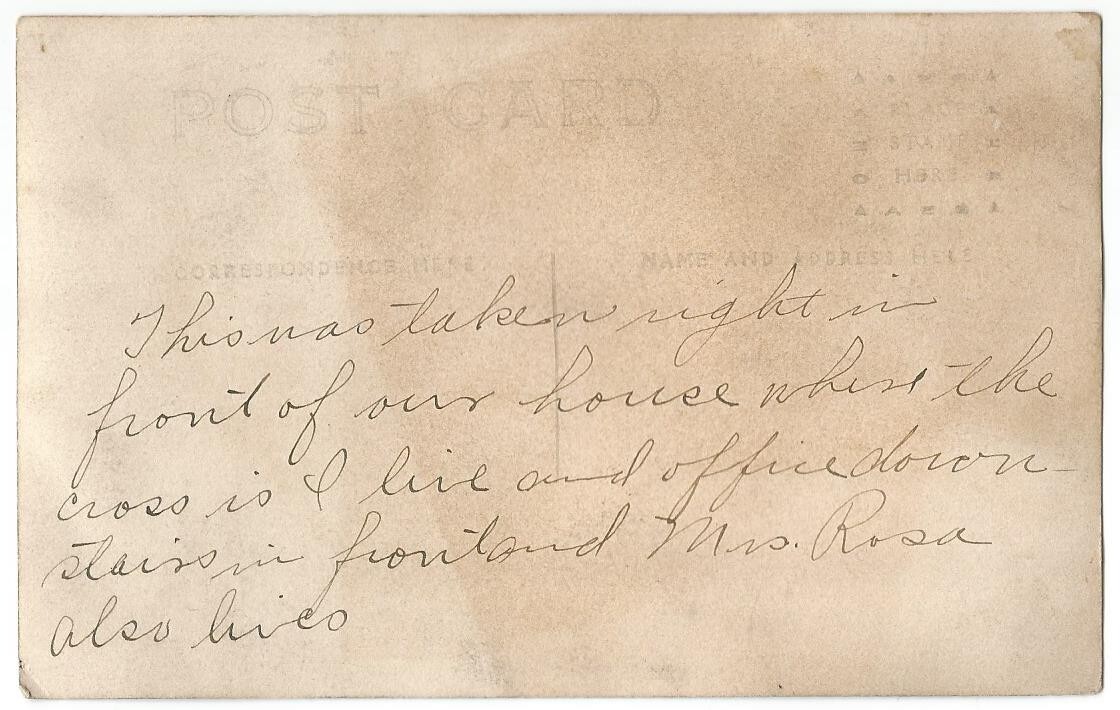 POST CARD
PLACE
STAMP
HERE
CORRESPONDENCE HERE
NAME AND ADDRESS HERE
This was taken right in
front of our house where the
cross is I live and office down-
stairs in front and Mrs. Rosa
also lives